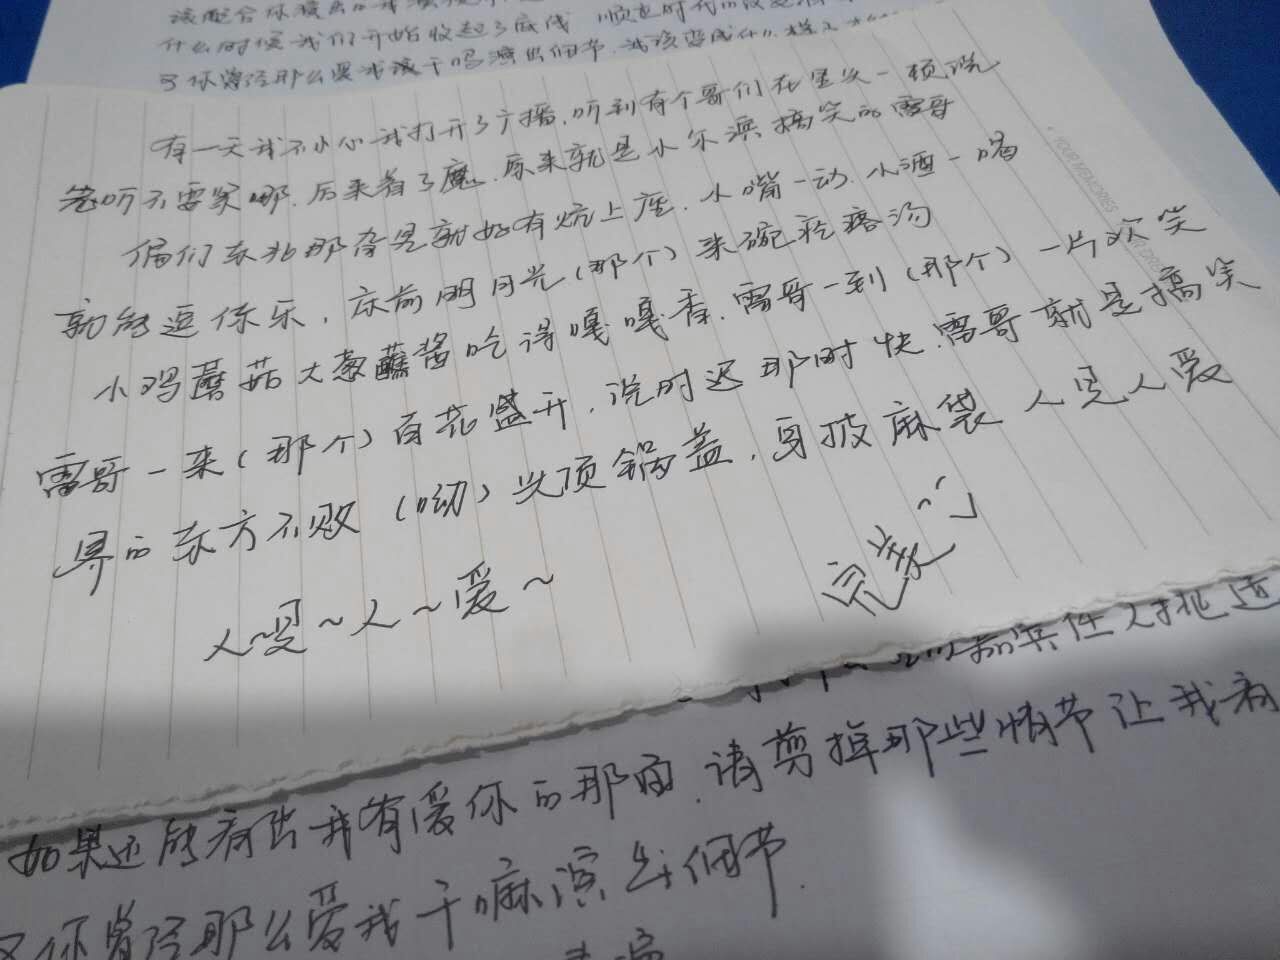 该配合你演出的我演视
什么时候我们开始收起了底线 顺应时代的改变
又你曾经那么爱我该干吗演出细节,我该变成什么样
有一天我不小心我打开了广播,听到有个哥们在里头一顿说
爸听不要笑哪,后来着了魔,原来就是小尔滨搞笑的雷哥
俺们东北那旮旯就好有炕上座,小嘴一动,小酒一喝
就能逗你乐,床前明月光(那个)来碗疙瘩汤
小鸡蘑菇大葱蘸酱吃得嘎嘎香,雷哥一到(那个)一片欢笑
雷哥一来(那个)百花盛开,说时迟那时快,雷哥就是搞笑
界的东方不败(呦)头顶锅盖,身披麻袋人见人爱
人~见~人~爱~
完美~
YOUR MEMORIES
任人挑选
如果还能看出我有爱你的那面,请剪掉那些情节让我看
又你曾经那么爱我干嘛演出细节.